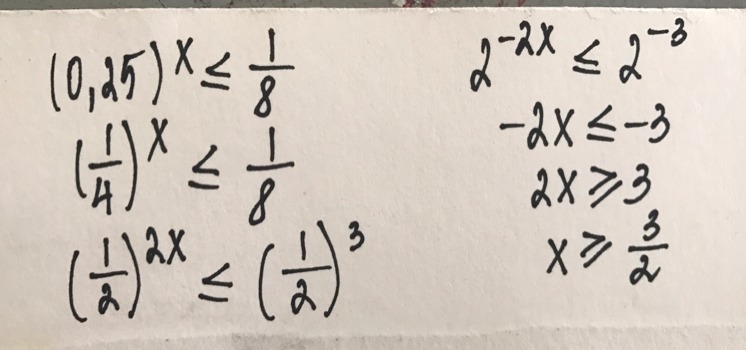 (0,25)^x ≤ 1/8
(1/4)^x ≤ 1/8
(1/2)^2x ≤ (1/2)^3
2^-2x ≤ 2^-3
-2x ≤ -3
2x ⩾ 3
x ⩾ 3/2